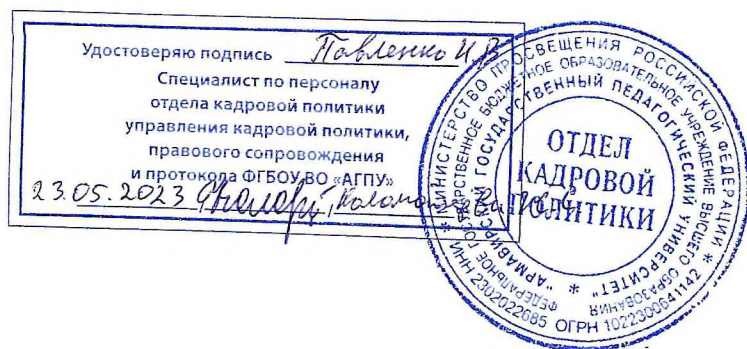 Удостоверяю подпись Павленко И.В
Специалист по персоналу
отдела кадровой политики
управления кадровой политики,
правового сопровождения
и протокола ФГБОУ ВО «АГПУ»
23.05.2023
* МИНИСТЕРСТВО ПРОСВЕЩЕНИЯ РОССИЙСКОЙ ФЕДЕРАЦИИ *
ИНН 2302022685 ОГРН 1022300641142
ФЕДЕРАЛЬНОЕ ГОСУДАРСТВЕННОЕ БЮДЖЕТНОЕ ОБРАЗОВАТЕЛЬНОЕ УЧРЕЖДЕНИЕ ВЫСШЕГО ОБРАЗОВАНИЯ
"АРМАВИРСКИЙ ГОСУДАРСТВЕННЫЙ ПЕДАГОГИЧЕСКИЙ УНИВЕРСИТЕТ" *
ОТДЕЛ
КАДРОВОЙ
ПОЛИТИКИ